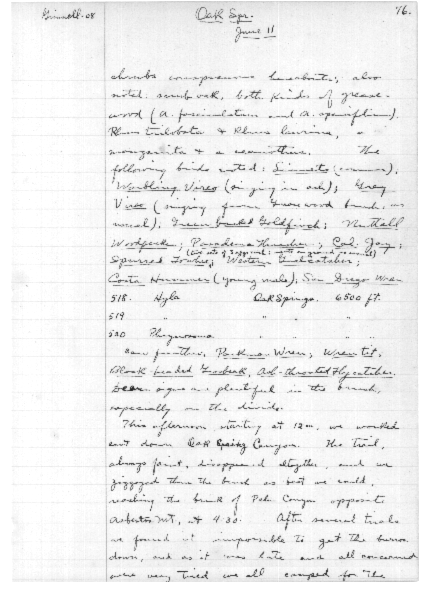 Grinnell-08
Oak Spr.
76.
June 11
shrubs conspicuous hereabouts; also
noted: scrub oak, both kinds of grease-
wood (A. fasciculatum and A. sparsifolium).
Rhus trilobata & a Rhus laurina, a
manzanita & a ceanothus. The
following birds noted: Linnets (common);
Warbling Vireo (singing in ash); Gray
Vireo (singing from Greasewood brush, as
usual); Green-backed Goldfinch; Nuttall
Woodpecker; Pasadena Thrasher; Cal. Jay;
(two sets of 3 approx.; nests on ground)
Spurred Towhee; Western Gnatcatcher;
Costa Hummer (young male); San Diego Wren
518. Hyla Oak Springs. 6500 ft.
519 " " "
520 Phrynosoma " "
Saw further, Parkman Wren; Wren-tit;
Black-headed Grosbeak, Ash-throated Flycatcher.
Deer signs are plentiful in the brush,
especially on the divide.
This afternoon starting at 12 m, we worked
east down Oak Spring Canyon. The trail,
always faint, disappeared altogether, and we
zigzagged thru the brush as best we could,
reaching the brink of Canyon opposite
Asbestos Mt, at 4:30. After several trials
we found it impossible to get the burros
down, and as it was late and all concerned
were very tired we all camped for the